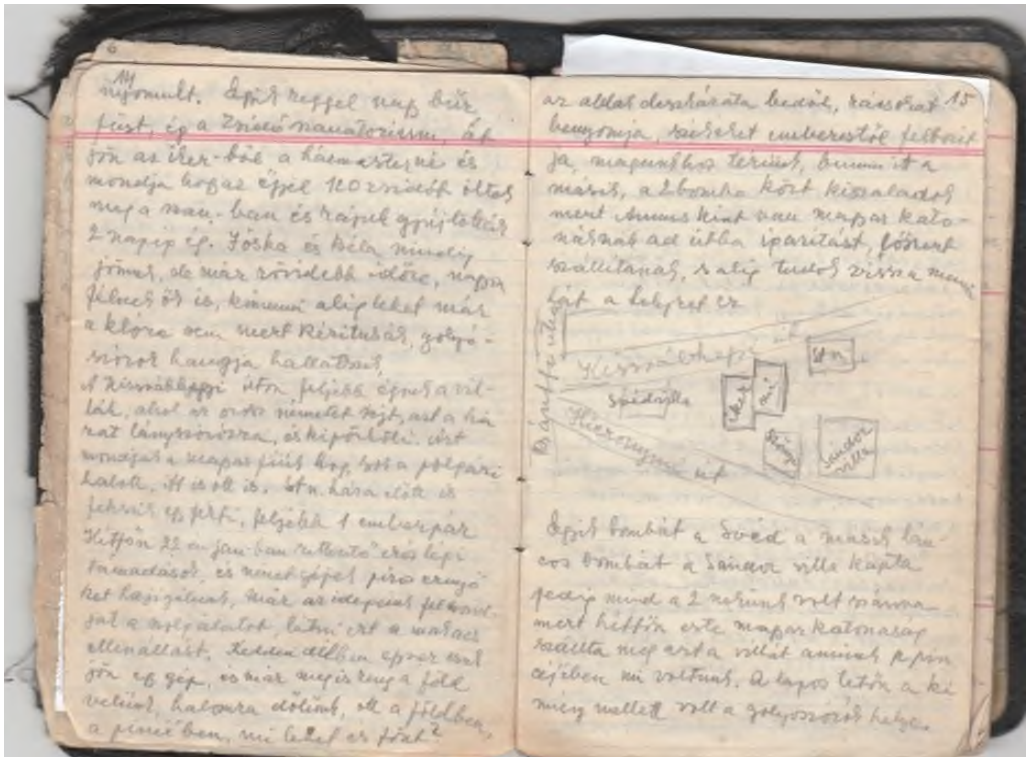 14
nyomult. Egyik reggel nagy bűz
füst, ég a Zsidó szanatorium, át
jön az iker-ből a házmesterné és
mondja hogy az éjjel 120 zsidót öltek
meg a szan.-ban és rájuk gyújtották
2 napig ég. Jóska és Béla mindig
jönnek, de már rövidebb időre, nagyon
félnek ők is, kimenni alig lehet már
a klóra sem mert Rézitusák, golyó-
szórók hangja hallatszik,
A Kissvábhegyi úton feljebb égnek a vil-
lák, ahol az orosz németet sejt, azt a há-
zat lángszórózza, és kipörköli. Azt
mondják a magyar fiúk hogy sok a polgári
halott. Itt is ott is. Stn. háza előtt is
fekszik egy férfi, feljebb 1 emberpár
Hétfőn 22-én jan-ban rettentő erős légi
támadások, és német gépek piros ernyő
ket hajigálnak, már az idegeink felmond-
ják a szolgálatot, látni ezt a makacs
ellenállást. Kedden délben egyszer csak
jön egy gép, és már megis reng a föld
velünk, halomra dőlünk, ott a földben,
a pincében, mi lehet ez fönt?
15
az ablak deszkázata bedől, rácsokat
benyomja, székeket emberestől felborít
ja, magunkhoz térünk, bumm itt a
másik, a 2 bomba közt kiszaladok
mert kint van magyar kato-
náknak ad útba igazítást, főzeket
szállítanak, s alig tudok vissza menni
hát a helyzet ez
Bánffy utca
Kissvábhegyi út
Stn
Svéd villa
iker
mi
Hieronymi út
Sándor villa
Egyik bombát a Svéd a másik lán-
cos bombát a Sándor villa kapta
pedig mind a 2 nekünk volt szánva
mert hétfőn este magyar katonaság
szállta meg azt a villát aminek a pin
céjében mi voltunk. A lapos tetőn a ké
mény mellett volt a golyószórók helye.